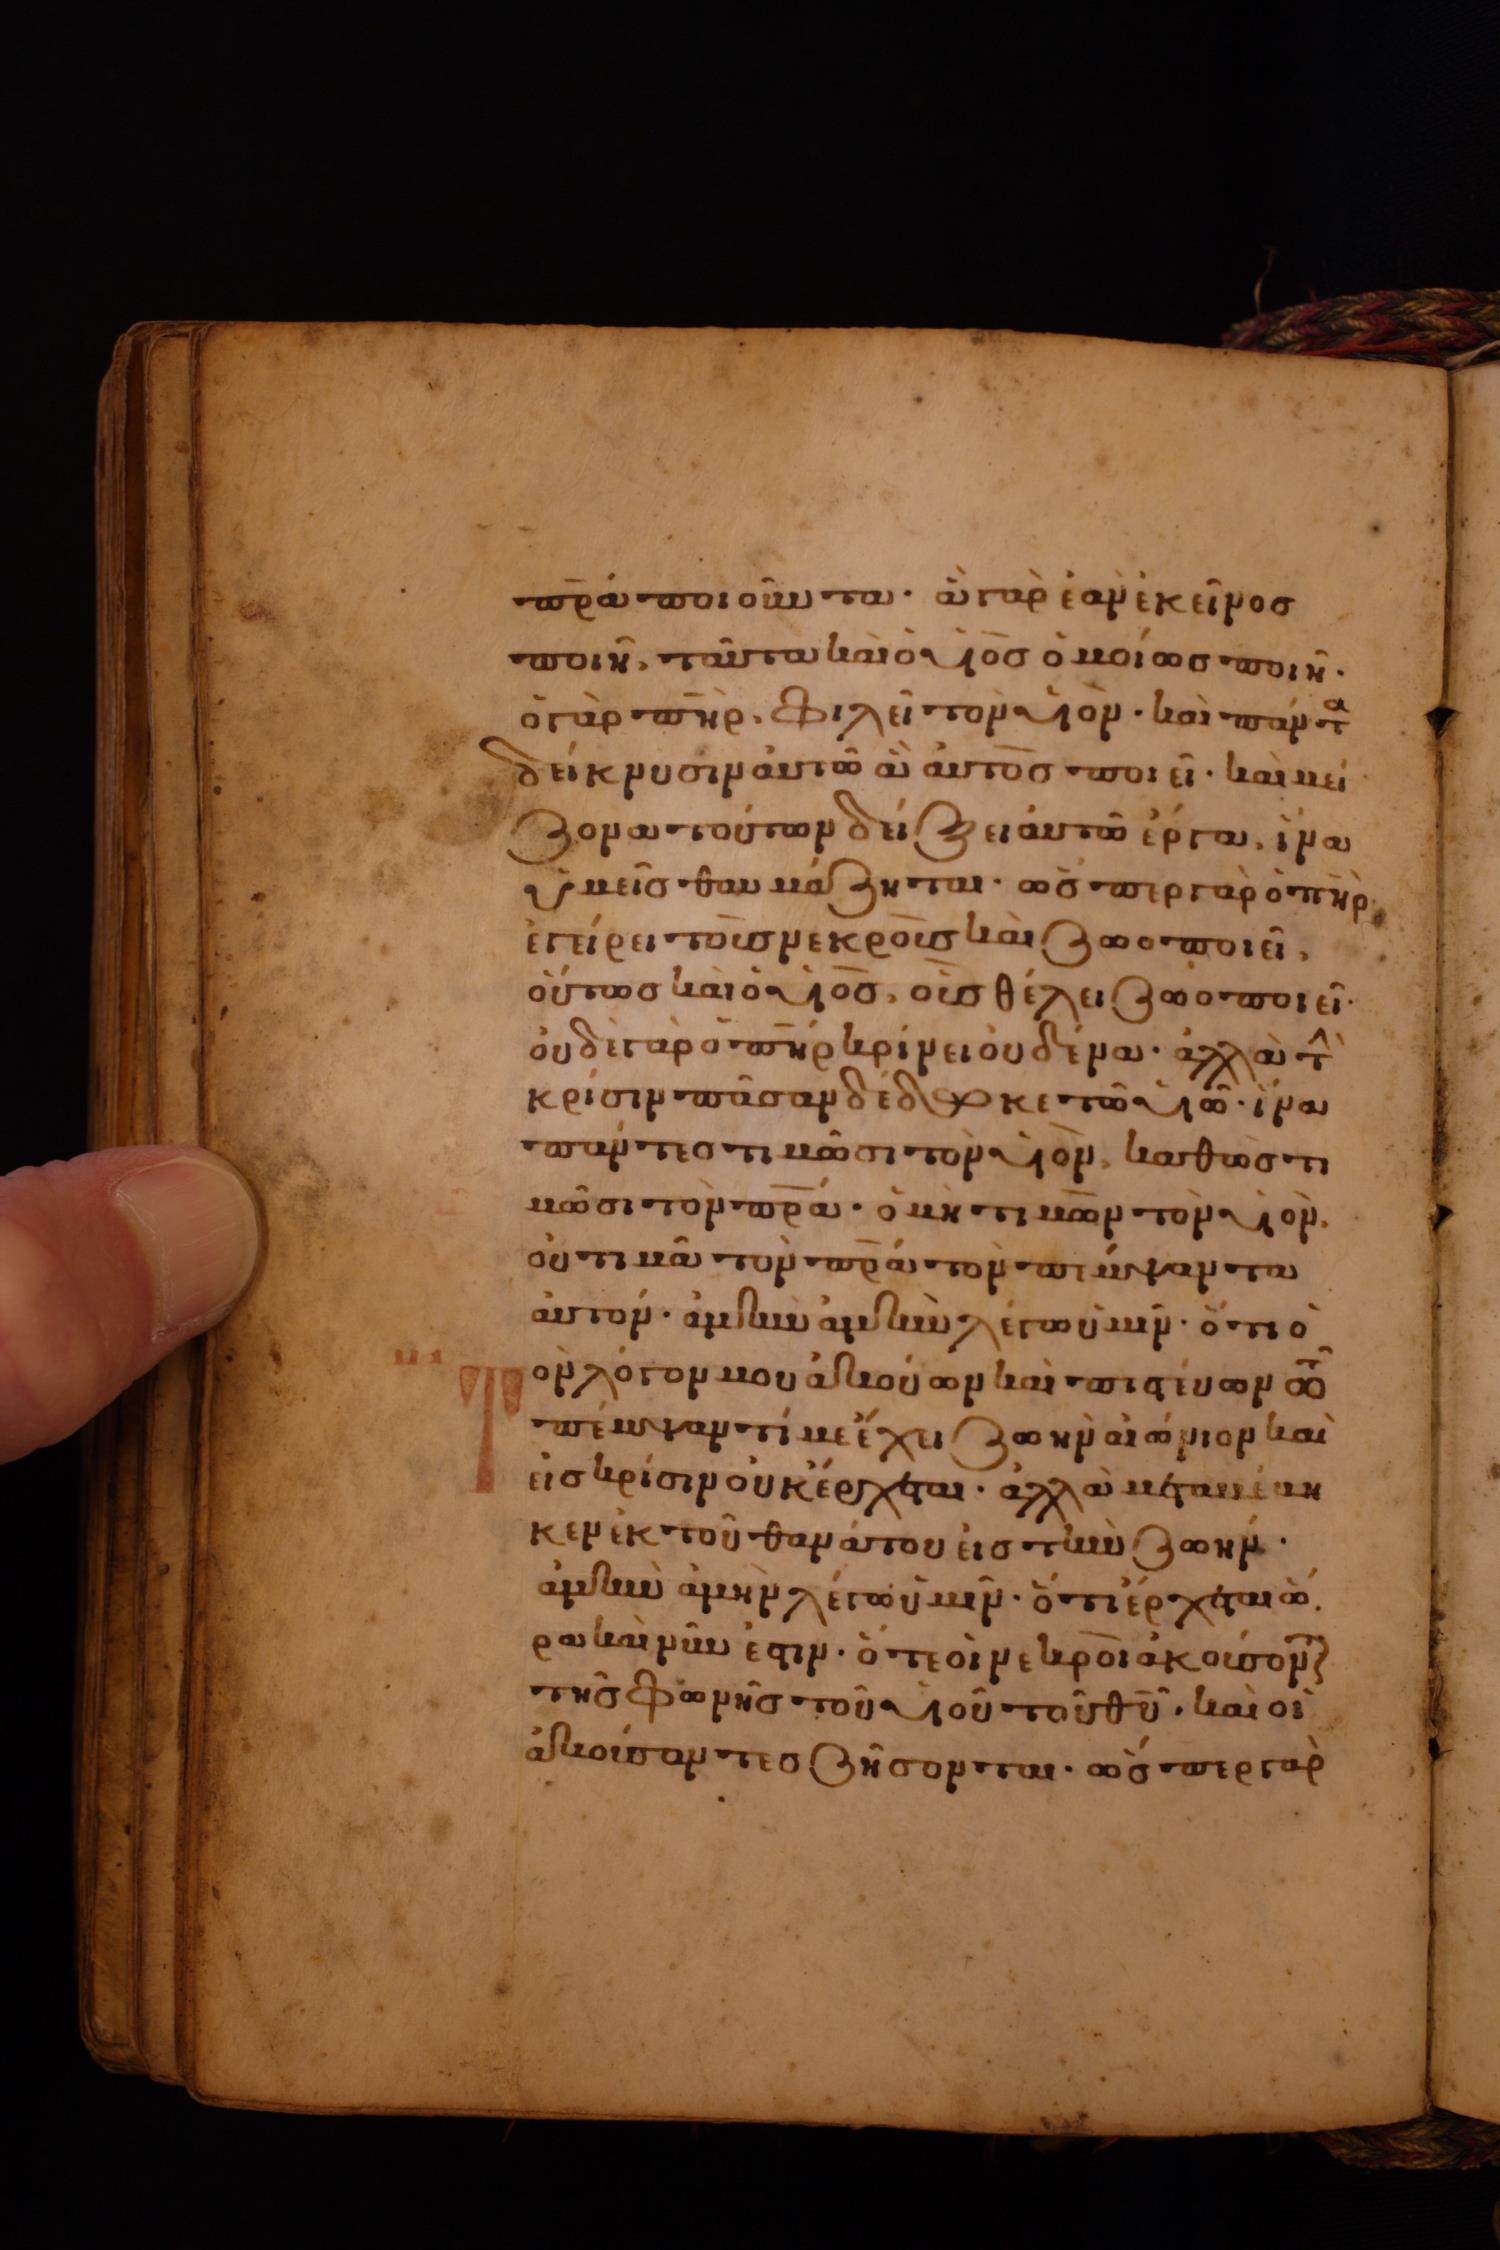 πρ̅α ποιοῦντα· ἃ γὰρ ἐὰν ἐκεῖνος
ποιῆ, ταῦτα καὶ ὁ υἱο̅ς ὁμοίως ποιῆ·
ὁ γὰρ πη̅ρ, φιλεῖ τὸν υἱὸν· καὶ πάντα
δείκνυσιν ἀυτῶ ἃ ἀυτὸς ποιεῖ· καὶ μεί
ζονα τούτων δείξει ἀυτῶ ἔργα, ἵνα
ὑμεῖς θαυμάζηται· ὥσπερ γὰρ ὁ πη̅ρ
ἐγείρει τοὺς νεκροὺς καὶ ζωοποιεῖ,
οὕτως καὶ ὁ υἱο̅ς, οὓς θέλει ζωοποιεῖ·
οὐδὲ γὰρ ὁ πη̅ρ κρίνει οὐδένα· ἀλλὰ τὴν
κρίσιν πᾶσαν δέδωκε τῶ υἱῶ· ἵνα
πάντες τιμῶσι τὸν υἱὸν, καθὼς τι
μῶσι τὸν πρ̅α· ὁ μὴ τιμῶν τὸν υἱὸν,
οὐ τιμᾶ τὸν πρ̅α τὸν πέμψαντα
ἀυτόν· ἀμὴν ἀμὴν λέγω ὑμῖν· ὅτι ὁ
τὸν λόγον μου ἀκούων καὶ πιστεύων τῶ
πέμψαντί με ἔχει ζωὴν αἰώνιον καὶ
εἰς κρίσιν οὐκ ἔρχεται· ἀλλὰ μεταβέβη
κεν ἐκ τοῦ θανάτου εἰς τὴν ζωήν·
ἀμὴν ἀμὴν λέγω ὑμῖν· ὅτι ἔρχεται ὥ
ρα καὶ νῦν ἐστιν· ὅτε οἱ νεκροὶ ἀκούσονται
τῆς φωνῆς τοῦ υἱοῦ τοῦ θυ̅· καὶ οἱ
ἀκούσαντες ζήσονται· ὥσπερ γὰρ